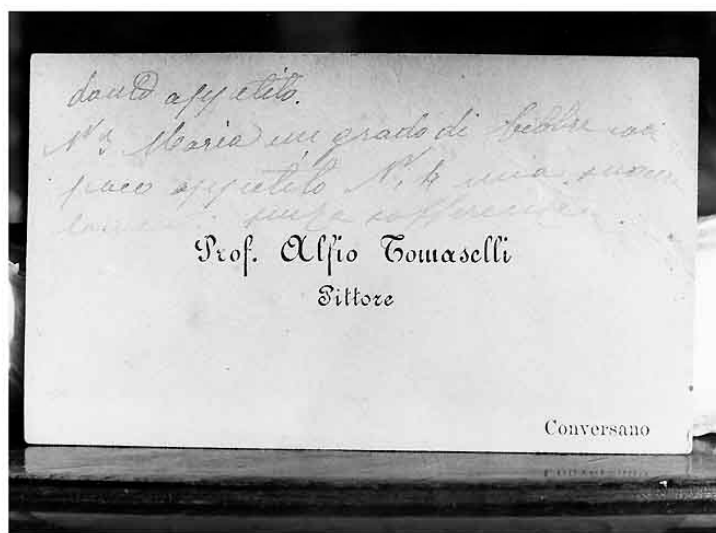 appetito.
N. 3 Maria un grado di febbre con
poco appetito N. 4 mia suocera
senza sofferenza
Prof. Alfio Tomaselli
Pittore
Conversano